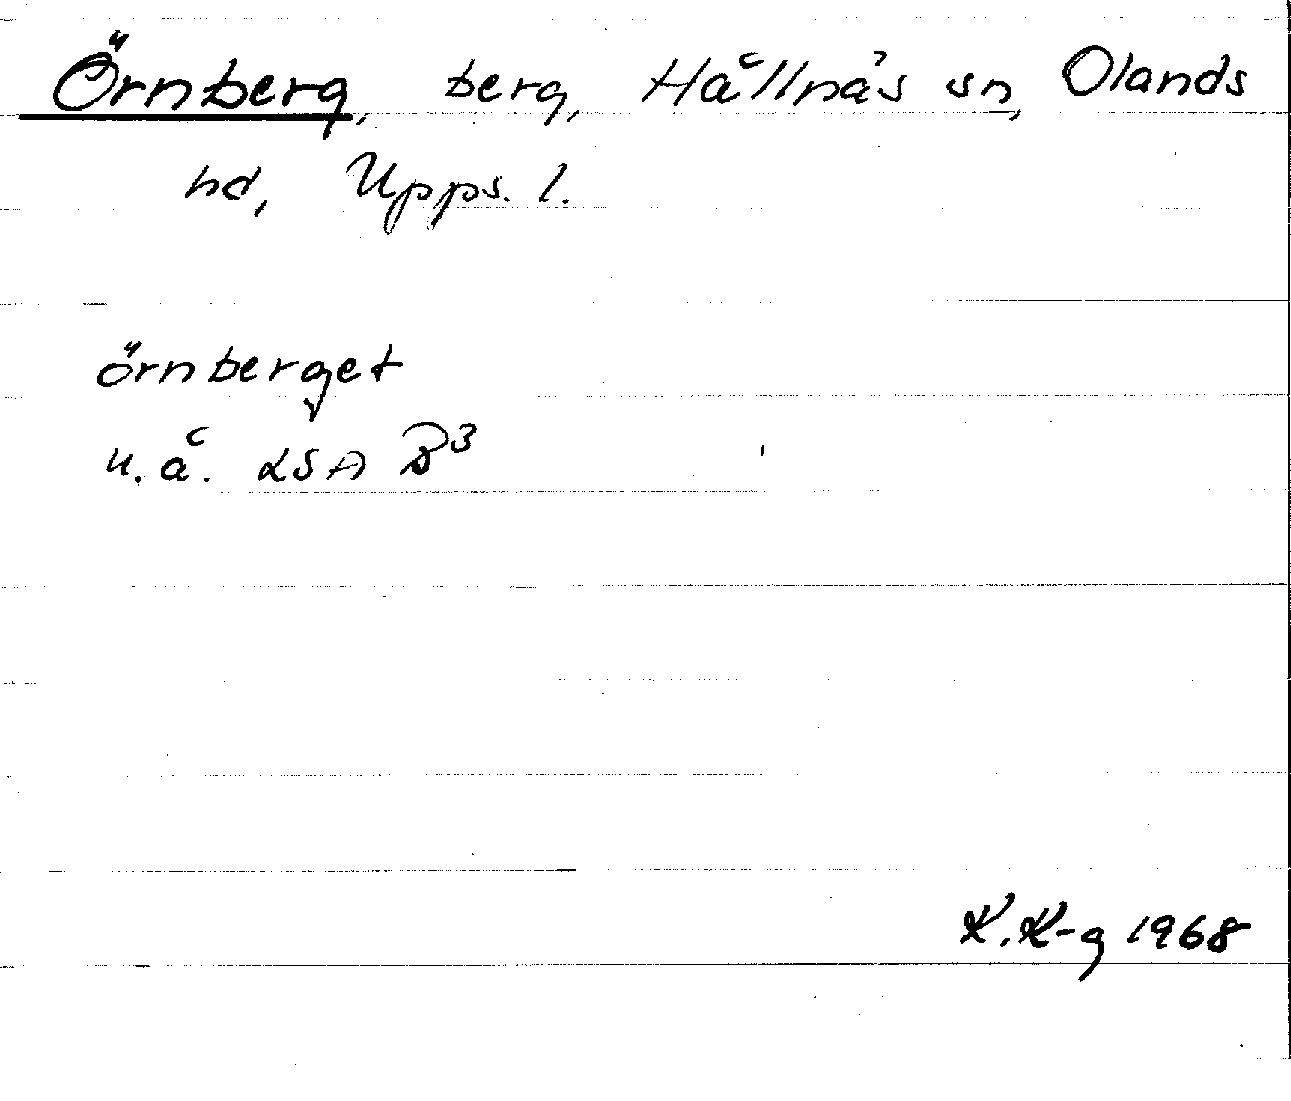 Örnberg, berg, Hållnäs sn, Olands
hd, Upps. l.
örnberget
u.å. LSA B3
K. K-g 1968